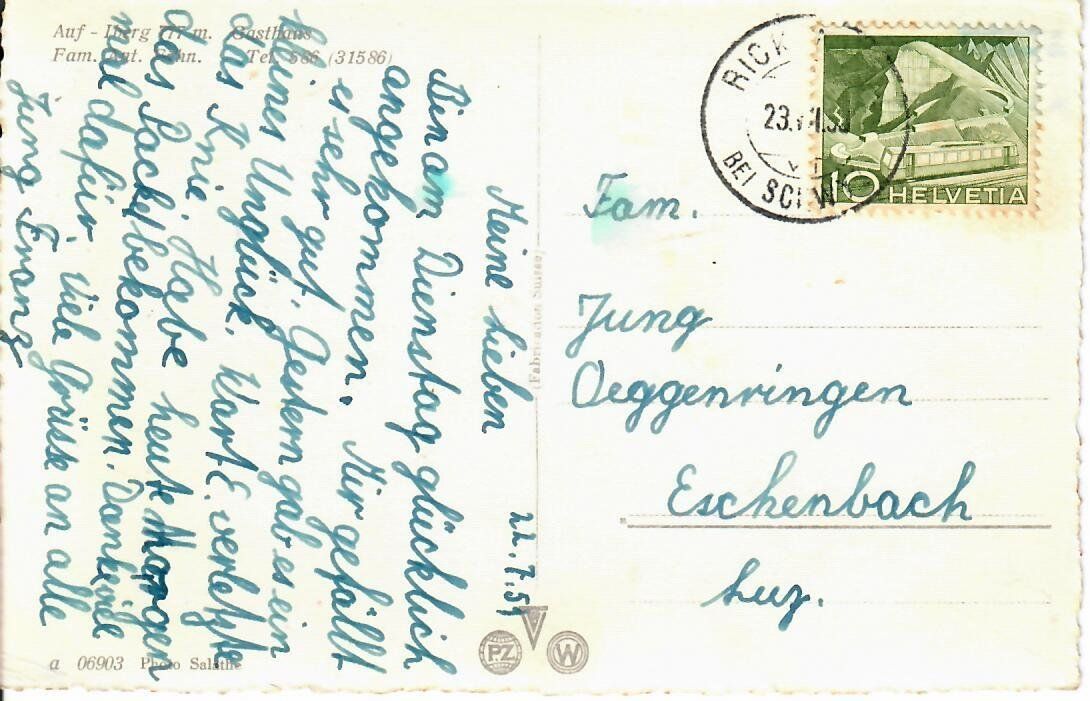 Auf - Iberg 777 m. Gasthaus
Fam. Ant. Tel. 586 (31586)
22.7.51
Meine Lieben
Bin am Dienstag glücklich
angekommen. Mir gefällt
es sehr gut. Gestern gab es ein
kleines Unglück. Kurt E. verletzte
das Knie. Habe heute Morgen
das Packet bekommen. Danke viel
mal dafür. Viele Grüsse an alle
Jung Franz
a 06903 Photo Salathé
(Fabrication Suisse)
PZ W
RICK
23.VII.5
BEI SCHW
10 HELVETIA
Fam.
Jung
Oeggenringen
Eschenbach
Luz.